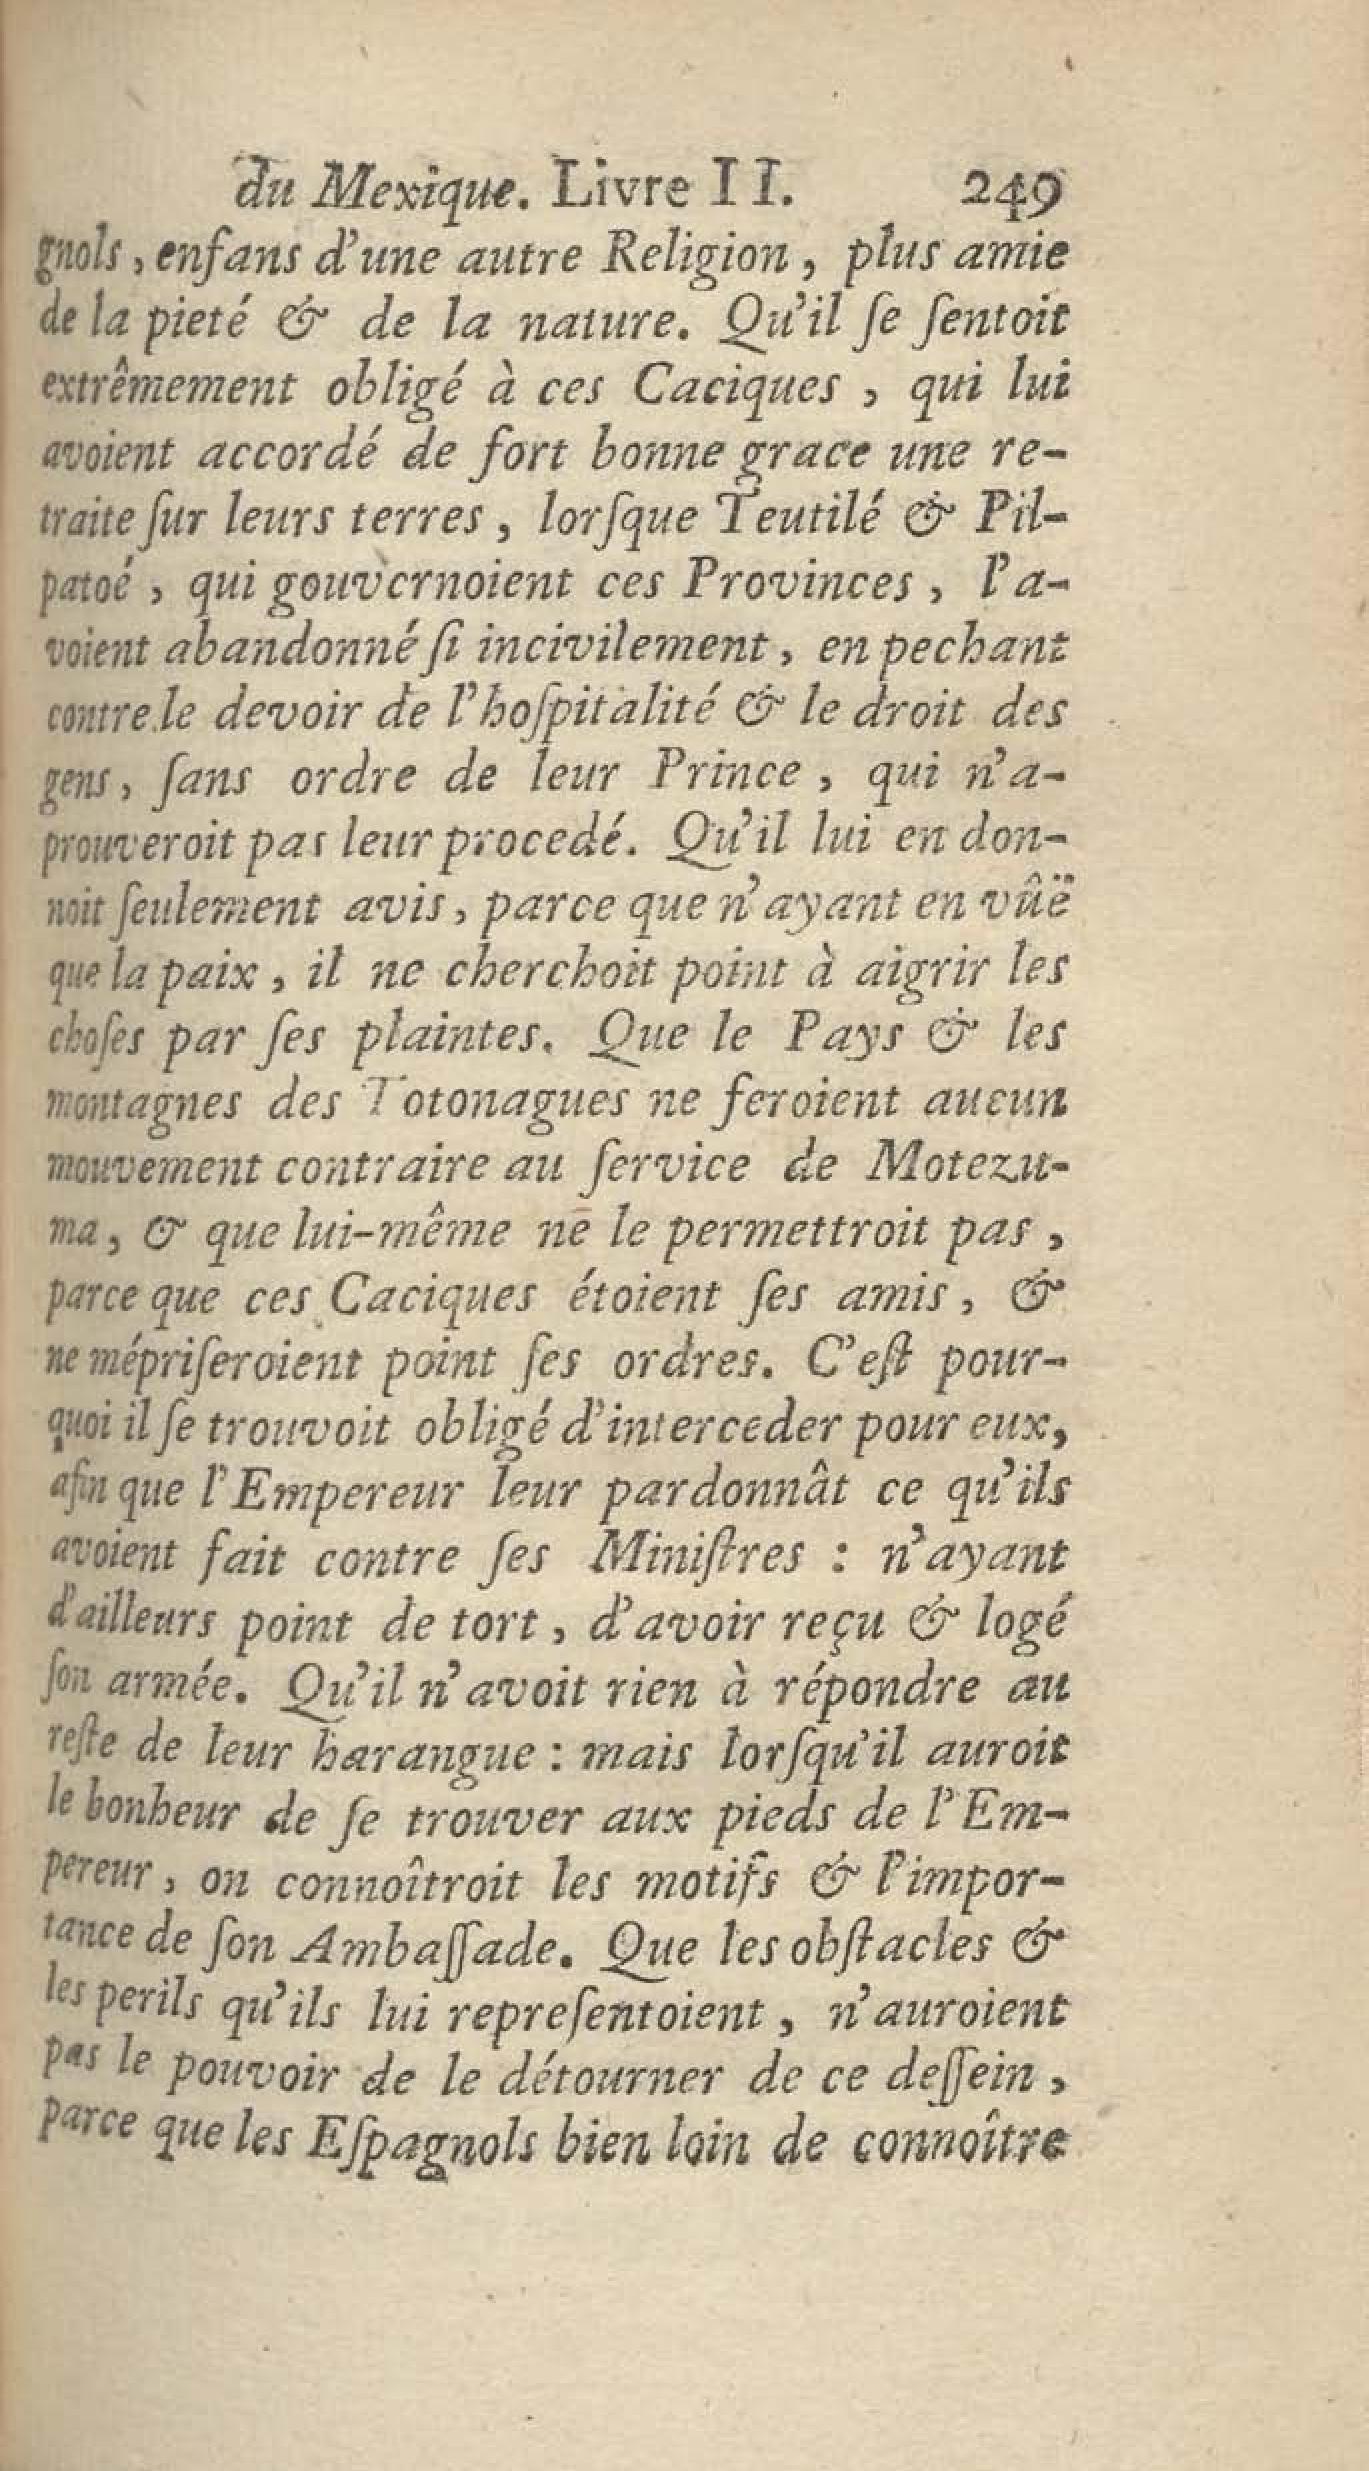 du Mexique. Livre II. 249
gnols, enfans d'une autre Religion, plus amie
de la pieté & de la nature. Qu'il ſe ſentoit
extrêmement obligé à ces Caciques, qui lui
avoient accordé de fort bonne grace une re-
traite ſur leurs terres, lorſque Teutilé & Pil-
patoé, qui gouvernoient ces Provinces, l'a-
voient abandonné ſi incivilement, en pechant
contre le devoir de l'hoſpitalité & le droit des
gens, ſans ordre de leur Prince, qui n'a-
prouveroit pas leur procedé. Qu'il lui en don-
noit ſeulement avis, parce que n'ayant en vûë
que la paix, il ne cherchoit point à aigrir les
choſes par ſes plaintes. Que le Pays & les
montagnes des Totonagues ne feroient aucun
mouvement contraire au ſervice de Motezu-
ma, & que lui-même ne le permettroit pas,
parce que ces Caciques étoient ſes amis, &
ne mépriſeroient point ſes ordres. C'eſt pour-
quoi il ſe trouvoit obligé d'interceder pour eux,
afin que l'Empereur leur pardonnât ce qu'ils
avoient fait contre ſes Miniſtres : n'ayant
d'ailleurs point de tort, d'avoir reçu & logé
ſon armée. Qu'il n'avoit rien à répondre au
reſte de leur harangue : mais lorſqu'il auroit
le bonheur de ſe trouver aux pieds de l'Em-
pereur, on connoîtroit les motifs & l'impor-
tance de ſon Ambaſſade. Que les obſtacles &
les perils qu'ils lui repreſentoient, n'auroient
pas le pouvoir de le détourner de ce deſſein,
parce que les Eſpagnols bien loin de connoître